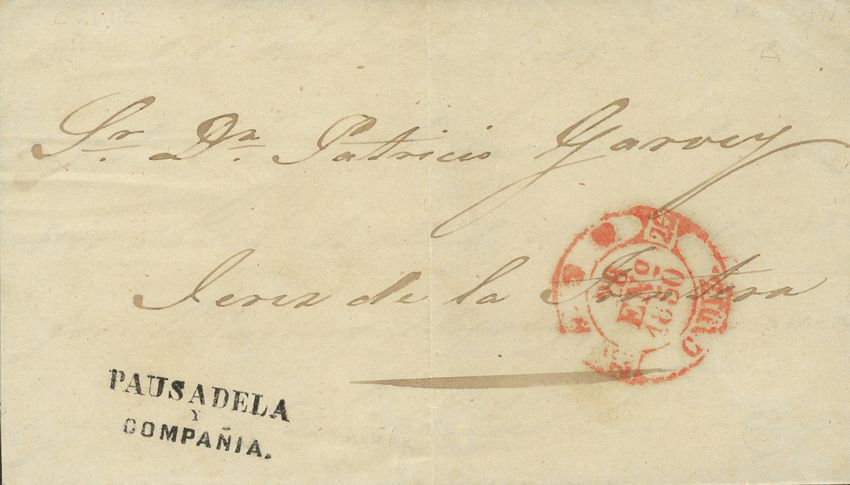 Sr. Dn. Patricio Garvey
Jerez de la Frontera
28
ENO
1850
CADIZ
PAUSADELA
Y
COMPAÑIA.